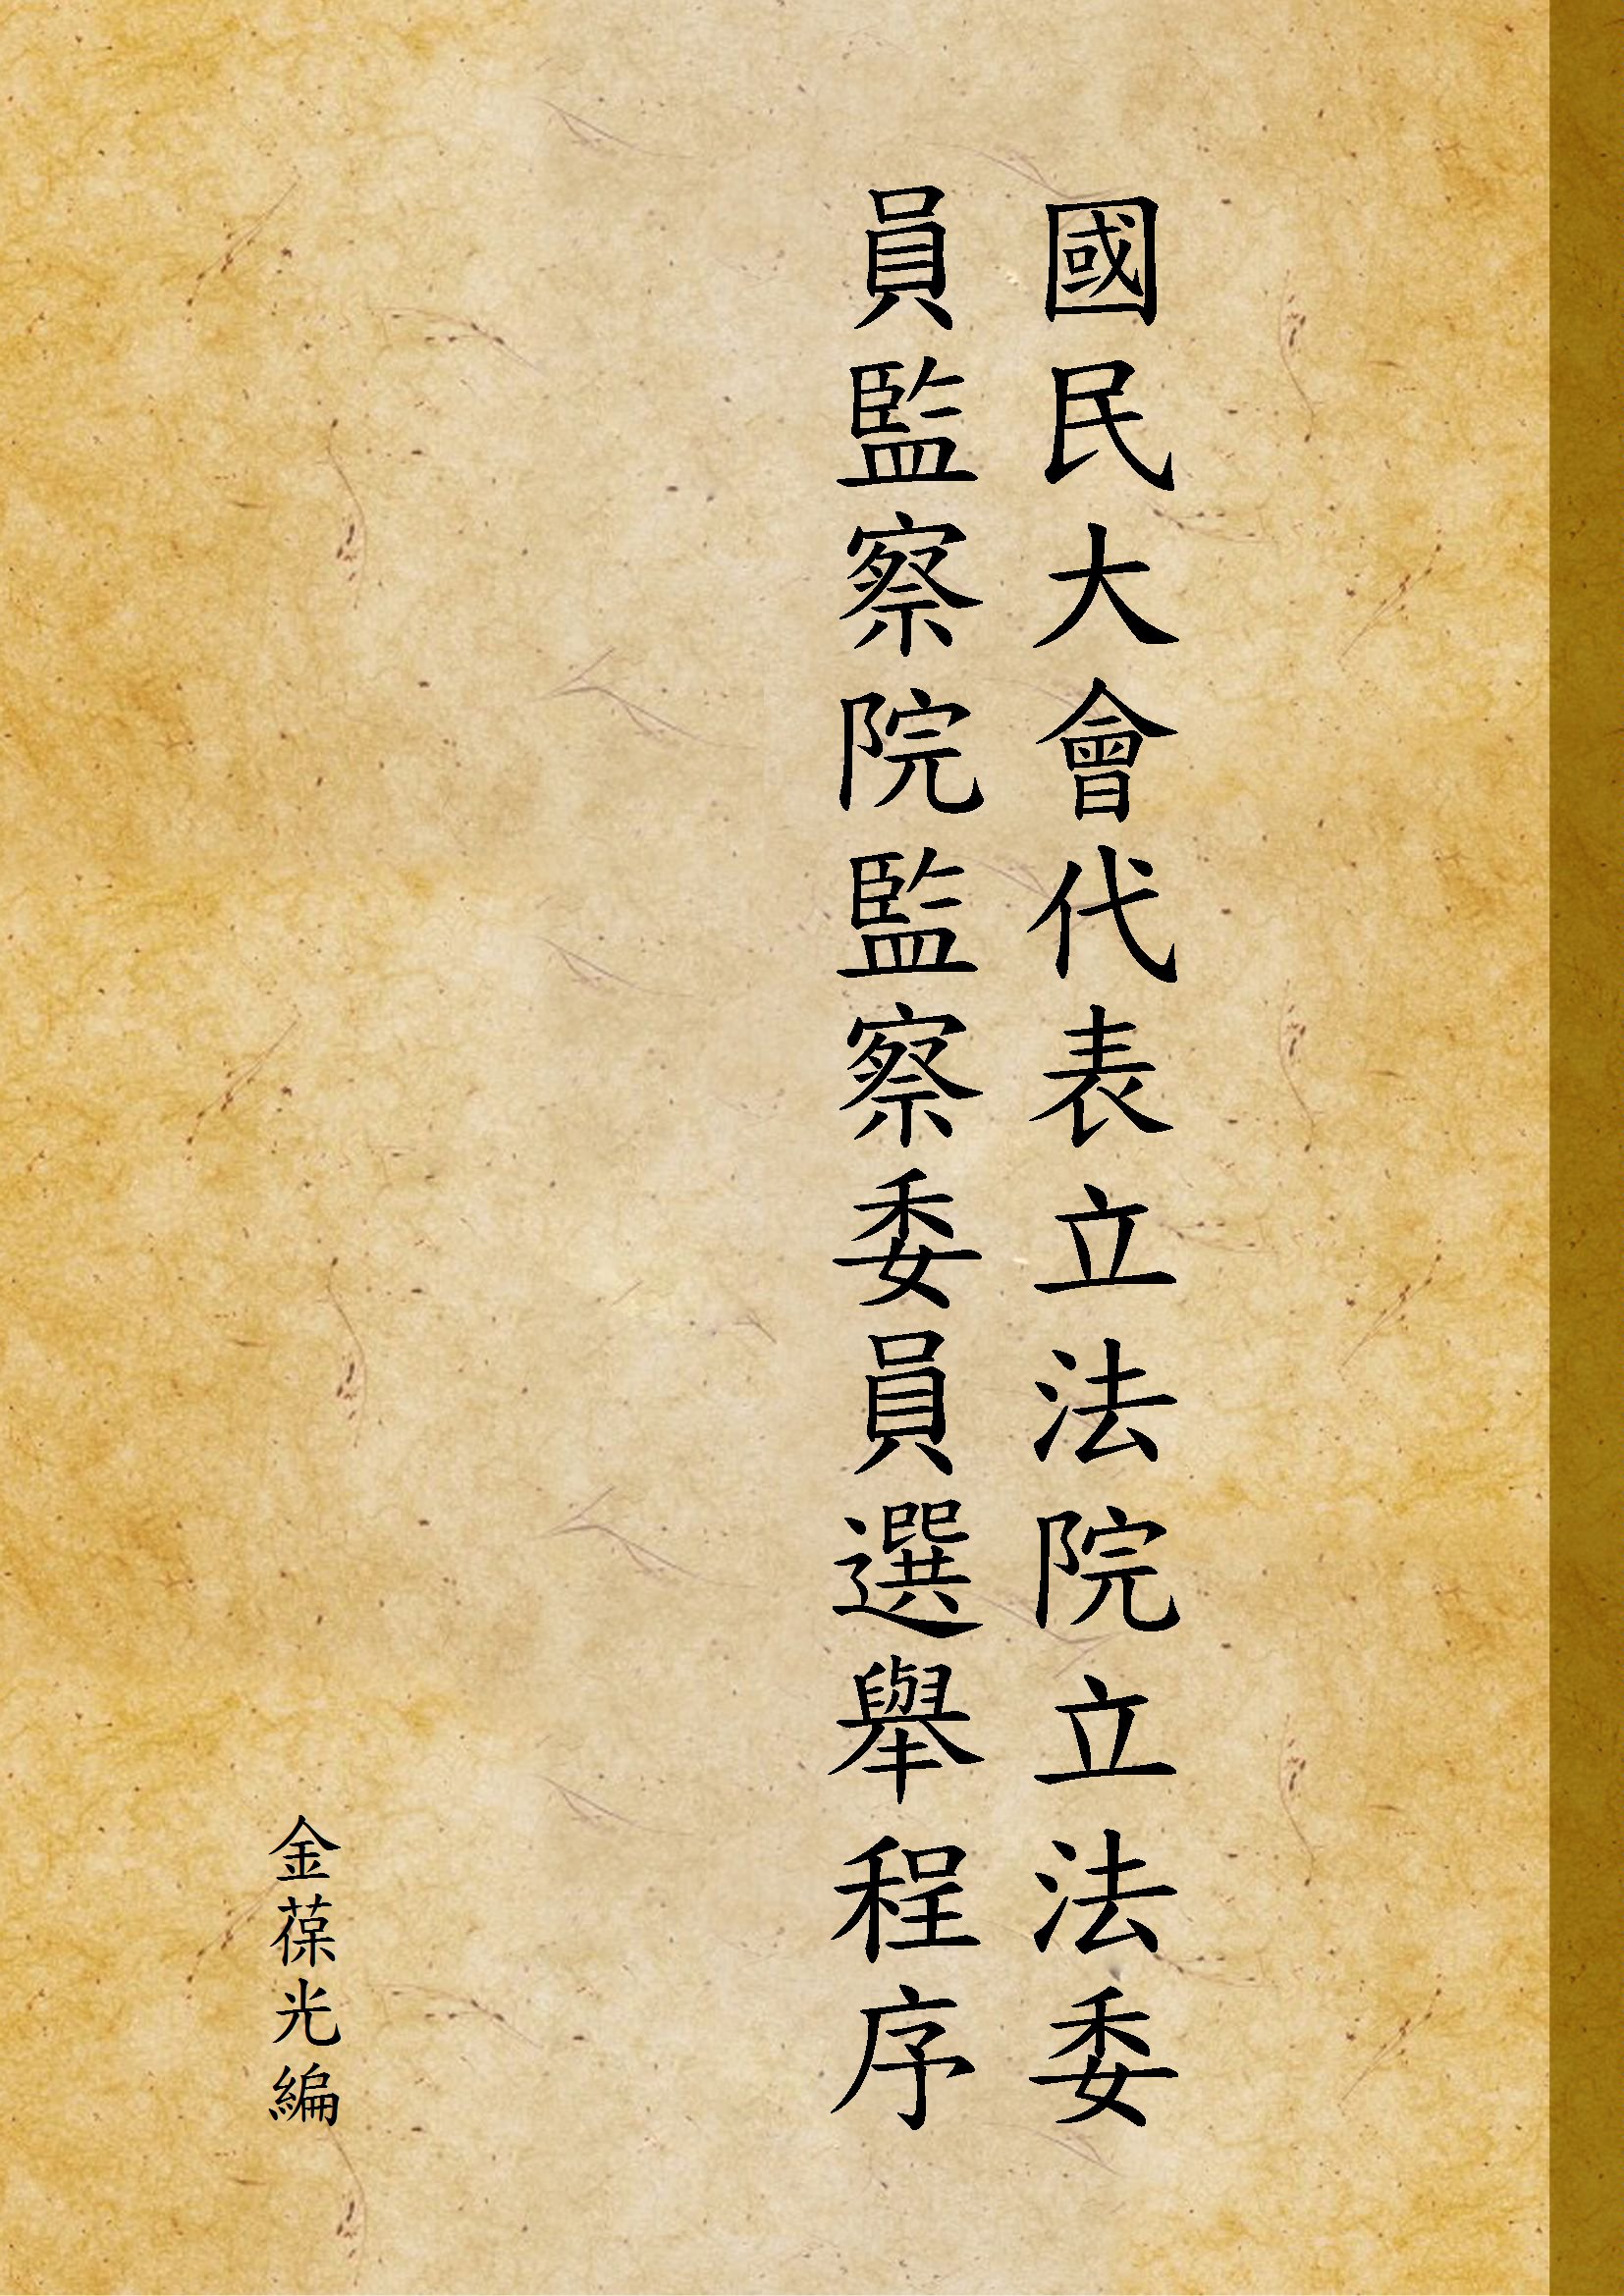 國民大會代表立法院立法委
員監察院監察委員選舉程序
金葆光編